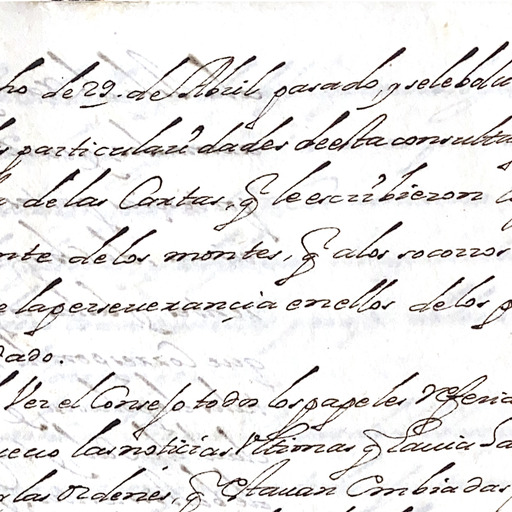 ho de 29. de Abril pasado, y se le bolu
s particularidades de esta consulta
a de las Cartas, q̃ le escribieron
nte de los montes, q̃ a los socorros
e la perseuerançia en ellos de los p
dado.
Ver el Consejo todos los papeles referid
las noticias Vltimas q̃ hauia
las ordenes, q̃ estauan embiadas